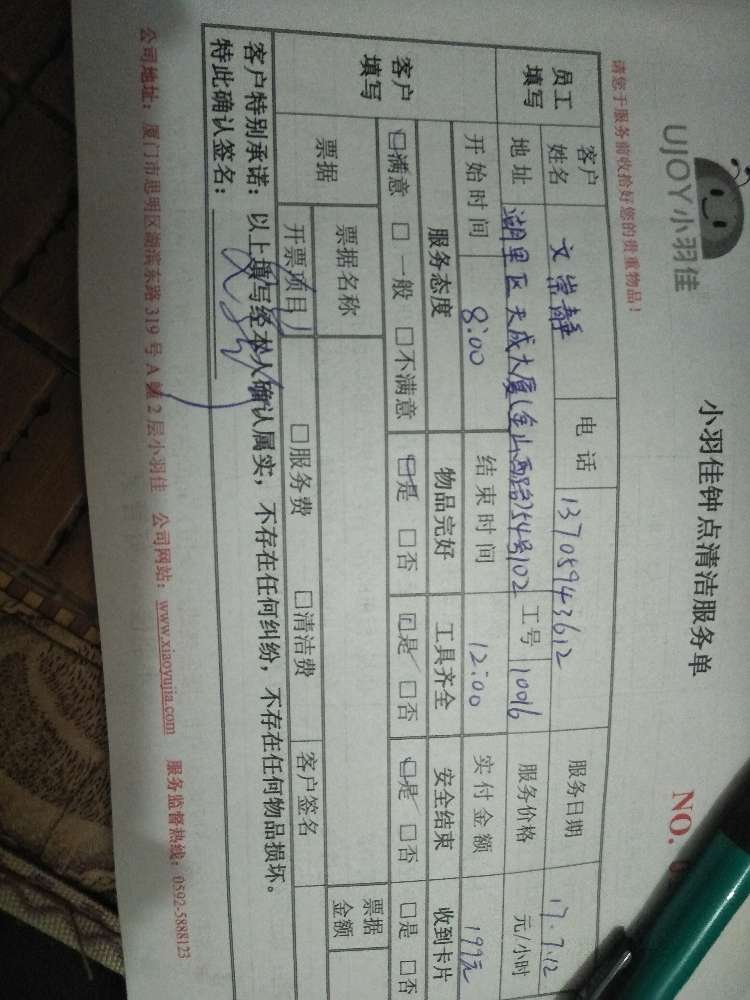 UJOY小羽佳
小羽佳钟点清洁服务单
NO.
请您于服务前收拾好您的贵重物品！
员工填写 客户姓名 文崇静 电话 13705943612 服务日期 17.7.12
地址 湖里区天成大厦(金山西路254号102 工号 10016 服务价格 元/小时
开始时间 8:00 结束时间 12:00 实付金额 199元
客户填写 服务态度 物品完好 工具齐全 安全结束 收到卡片
☑满意 □一般 □不满意 ☑是 □否 ☑是 □否 ☑是 □否 □是 □否
票据 票据名称 票据金额
开票项目 □服务费 □清洁费 客户签名
客户特别承诺：以上填写经本人确认属实，不存在任何纠纷，不存在任何物品损坏。
特此确认签名：
公司地址：厦门市思明区湖滨东路319号A幢2层小羽佳 公司网站：www.xiaoyujia.com 服务监督热线：0592-5888123